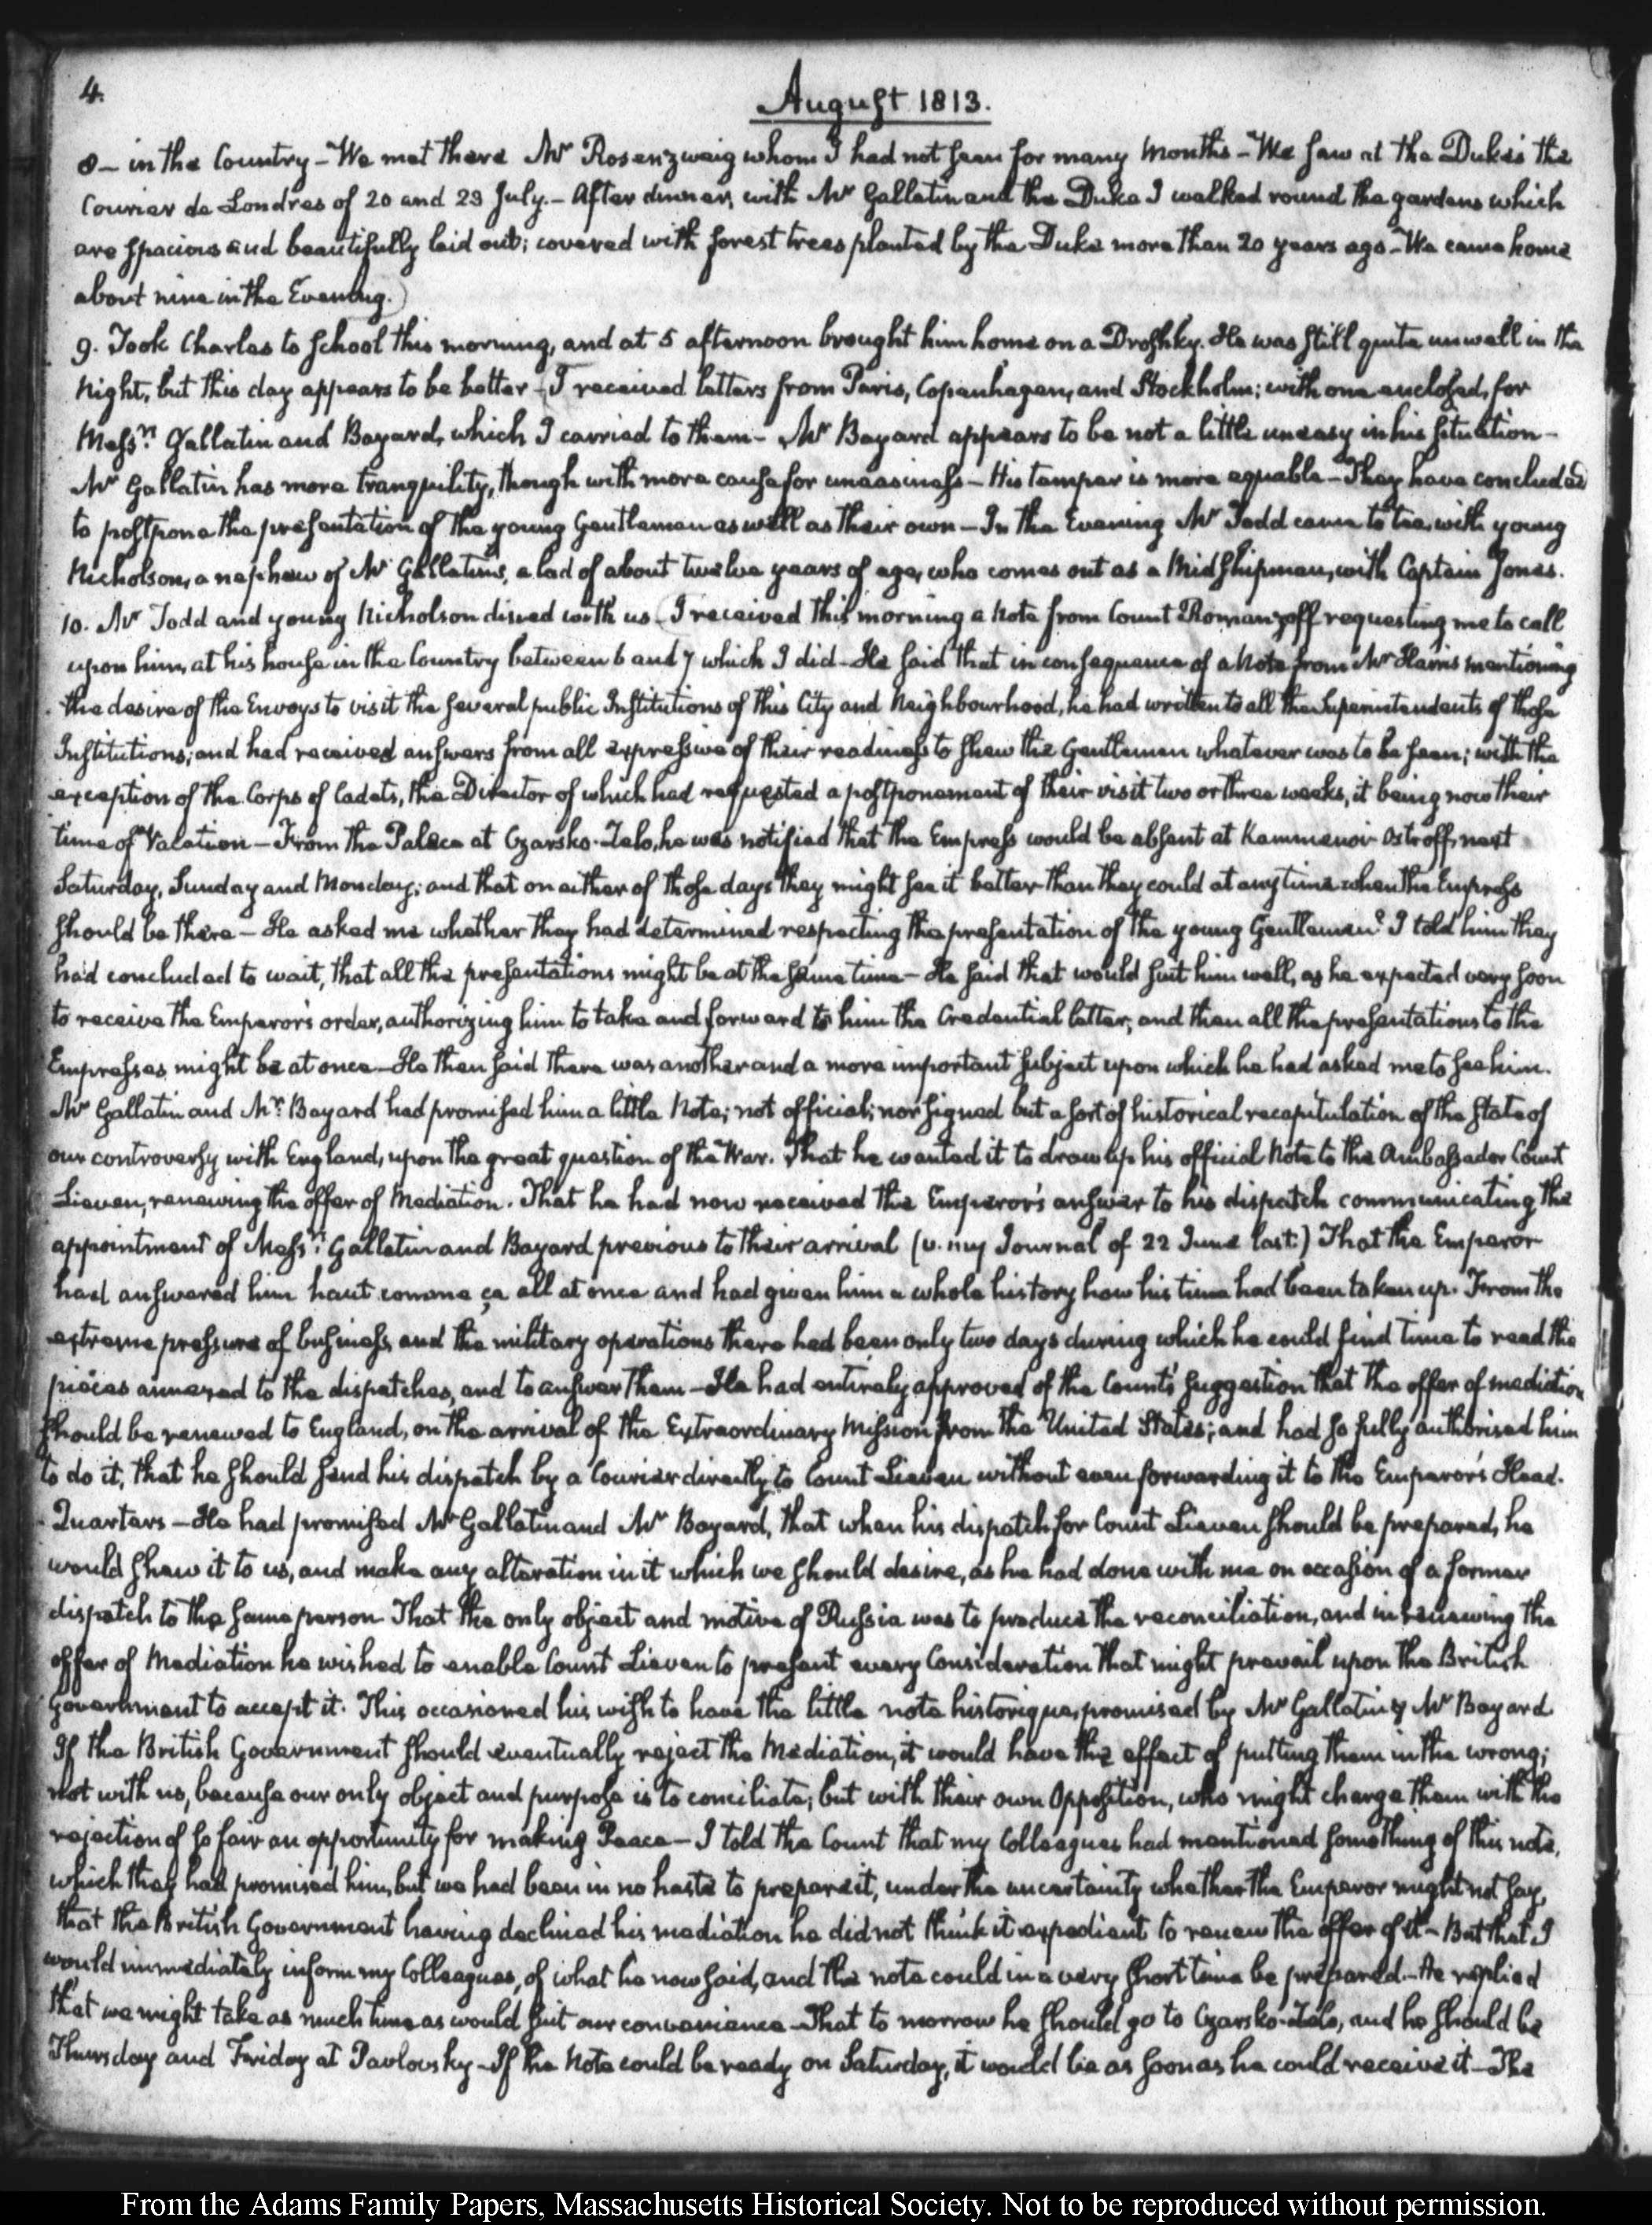 4.
August 1813.
8 — in the Country – We met there Mr Rosenzweig whom I had not seen for many Months – We saw at the Duke's the
Courier de Londres of 20 and 23 July. – After dinner, with Mr Gallatin and the Duke I walked round the gardens which
are spacious and beautifully laid out; covered with forest trees planted by the Duke more than 20 years ago – We came home
about nine in the Evening.)
9. Took Charles to School this morning, and at 5 afternoon brought him home on a Droshky. He was still quite unwell in the
Night, but this day appears to be better – I received letters from Paris, Copenhagen, and Stockholm; with one enclosed, for
Messrs Gallatin and Bayard, which I carried to them – Mr Bayard appears to be not a little uneasy in his situation –
Mr Gallatin has more tranquility, though with more cause for uneasiness – His temper is more equable – They have concluded
to postpone the presentation of the young Gentlemen as well as their own – In the Evening Mr Todd came to tea, with young
Nicholson, a nephew of Mr Gallatin's, a lad of about twelve years of age, who comes out as a Midshipman, with Captain Jones.
10. Mr Todd and young Nicholson dined with us (I received this morning a Note from Count Romanzoff requesting me to call
upon him, at his house in the Country between 6 and 7 which I did – He said that in consequence of a Note from Mr Harris mentioning
the desire of the Envoys to visit the several public Institutions of this City and Neighbourhood, he had written to all the Superintendents of those
Institutions; and had received answers from all expressive of their readiness to shew the Gentlemen whatever was to be seen; with the
exception of the Corps of Cadets, the Director of which had requested a postponement of their visit two or three weeks, it being now their
time of Vacation – From the Palace at Czarsko-Zelo, he was notified that the Empress would be absent at Kammenoi Ostroff, next
Saturday, Sunday and Monday; and that on either of those days they might see it better than they could at any time when the Empress
should be there – He asked me whether they had determined respecting the presentation of the young Gentlemen? I told him they
had concluded to wait, that all the presentations might be at the same time – He said that would suit him well, as he expected very soon
to receive the Emperor's order, authorizing him to take and forward to him the Credential letter, and then all the presentations to the
Empresses might be at once – He then said there was another and a more important subject upon which he had asked me to see him.
Mr Gallatin and Mr Bayard had promised him a little Note; not official; nor signed but a sort of historical recapitulation of the state of
our controversy with England, upon the great question of the War. That he wanted it to draw up his official Note to the Ambassador Count
Lieven, renewing the offer of Mediation. That he had now received the Emperor's answer to his dispatch communicating the
appointment of Messrs Gallatin and Bayard previous to their arrival (v. my Journal of 22 June last.) That the Emperor
had answered him haut comme ça all at once and had given him a whole history how his time had been taken up. From the
extreme pressure of business, and the military operations there had been only two days during which he could find time to read the
pièces annexed to the dispatches, and to answer them – He had entirely approved of the Count's suggestion that the offer of mediation
should be renewed to England, on the arrival of the Extraordinary Mission from the United States; and had so fully authorised him
to do it, that he should send his dispatch by a Courier directly to Count Lieven without even forwarding it to the Emperor's Head-
Quarters – He had promised Mr Gallatin and Mr Bayard, that when his dispatch for Count Lieven should be prepared, he
would shew it to us, and make any alteration in it which we should desire, as he had done with me on occasion of a former
dispatch to the same person. That the only object and motive of Russia was to produce the reconciliation, and in renewing the
offer of Mediation he wished to enable Count Lieven to present every Consideration that might prevail upon the British
Government to accept it. This occasioned his wish to have the little note historique, promised by Mr Gallatin & Mr Bayard.
If the British Government should eventually reject the Mediation, it would have the effect of putting them in the wrong;
not with us, because our only object and purpose is to conciliate; but with their own Opposition, who might charge them with the
rejection of so fair an opportunity for making Peace – I told the Count that my Colleagues had mentioned something of this note,
which they had promised him, but we had been in no haste to prepare it, under the uncertainty whether the Emperor might not say,
that the British Government having declined his mediation he did not think it expedient to renew the offer of it – But that I
would immediately inform my Colleagues, of what he now said, and the note could in a very short time be prepared. – He replied
that we might take as much time as would suit our convenience – That to morrow he should go to Czarsko-Zelo, and he should be
Thursday and Friday at Pavlovsky – If the Note could be ready on Saturday, it would be as soon as he could receive it – The
From the Adams Family Papers, Massachusetts Historical Society. Not to be reproduced without permission.